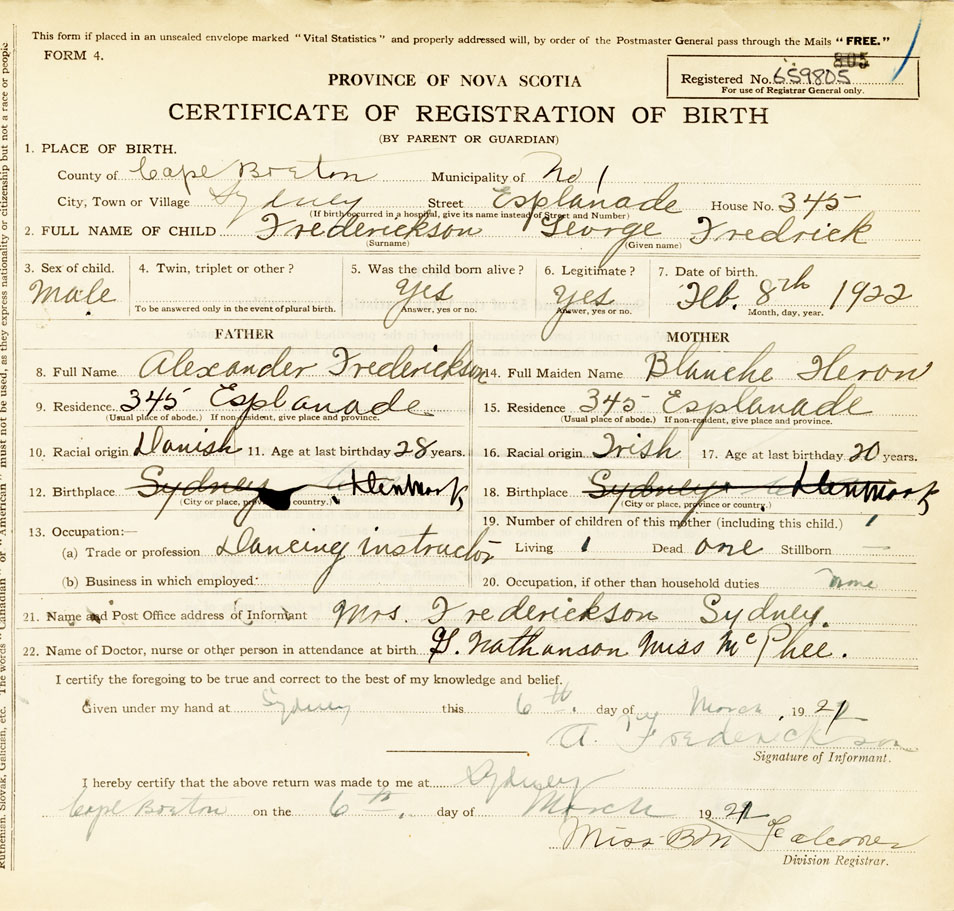 This form if placed in an unsealed envelope marked "Vital Statistics" and properly addressed will, by order of the Postmaster General pass through the Mails "FREE."
FORM 4.
805
Registered No. 659805
For use of Registrar General only.
PROVINCE OF NOVA SCOTIA
CERTIFICATE OF REGISTRATION OF BIRTH
(BY PARENT OR GUARDIAN)
1. PLACE OF BIRTH.
County of Cape Breton Municipality of No 1
City, Town or Village Sydney Street Esplanade House No. 345
(If birth occurred in a hospital, give its name instead of Street and Number)
2. FULL NAME OF CHILD Frederickson George Fredrick
(Surname) (Given name)
3. Sex of child. 4. Twin, triplet or other? 5. Was the child born alive? 6. Legitimate? 7. Date of birth.
Male Yes Yes Feb. 8th 1922
To be answered only in the event of plural birth. Answer, yes or no. Answer, yes or no. Month, day, year.
FATHER MOTHER
8. Full Name Alexander Frederickson 14. Full Maiden Name Blanche Heron
9. Residence. 345 Esplanade 15. Residence 345 Esplanade
(Usual place of abode.) If non-resident, give place and province. (Usual place of abode.) If non-resident, give place and province.
10. Racial origin Danish 11. Age at last birthday 28 years. 16. Racial origin Irish 17. Age at last birthday 20 years.
12. Birthplace Sydney Denmark 18. Birthplace Sydney Denmark
(City or place, province or country.) (City or place, province or country.)
19. Number of children of this mother (including this child.) 1
13. Occupation:—
(a) Trade or profession Dancing instructor Living 1 Dead one Stillborn —
(b) Business in which employed. 20. Occupation, if other than household duties none
21. Name and Post Office address of Informant Mrs. Frederickson Sydney.
22. Name of Doctor, nurse or other person in attendance at birth G. Nathanson Miss McPhee.
I certify the foregoing to be true and correct to the best of my knowledge and belief.
Given under my hand at Sydney this 6th. day of March, 19
A. Frederickson
Signature of Informant.
I hereby certify that the above return was made to me at Sydney
Cape Breton on the 6th. day of March 19
Miss BM Falconer
Division Registrar.
Ruthenian, Slovak, Galician, etc. The words "Canadian" or "American" must not be used, as they express nationality or citizenship but not a race or people